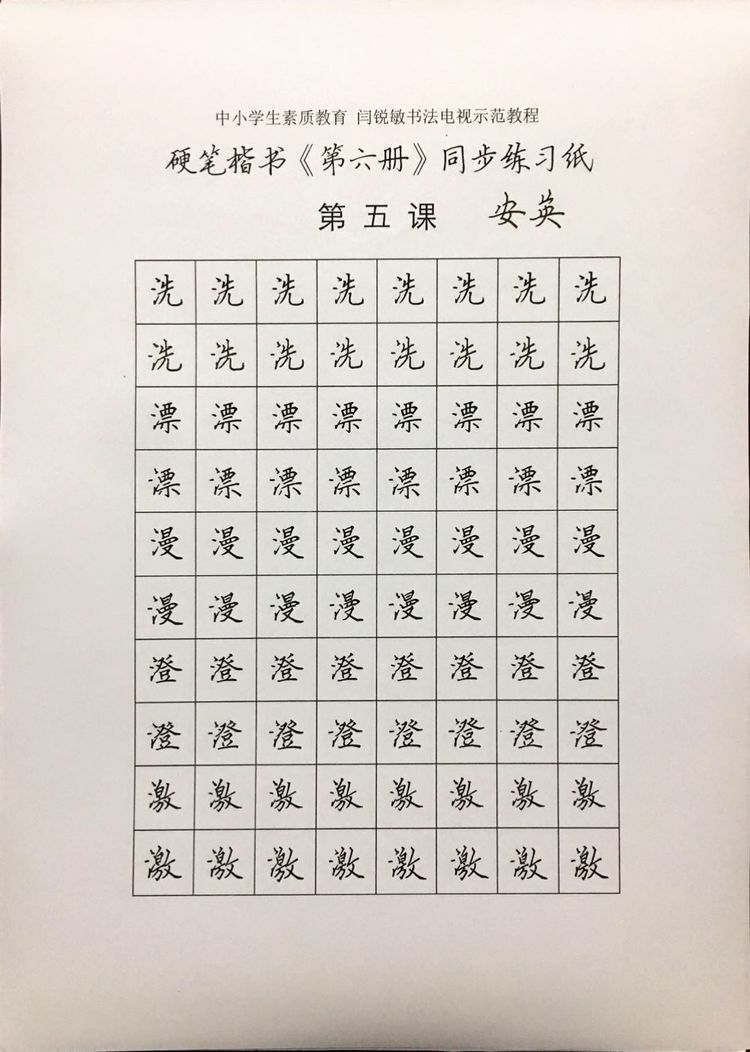 中小学生素质教育 闫锐敏书法电视示范教程
硬笔楷书《第六册》同步练习纸
第五课 安英
洗洗洗洗洗洗洗洗
洗洗洗洗洗洗洗洗
漂漂漂漂漂漂漂漂
漂漂漂漂漂漂漂漂
漫漫漫漫漫漫漫漫
漫漫漫漫漫漫漫漫
澄澄澄澄澄澄澄澄
澄澄澄澄澄澄澄澄
激激激激激激激激
激激激激激激激激